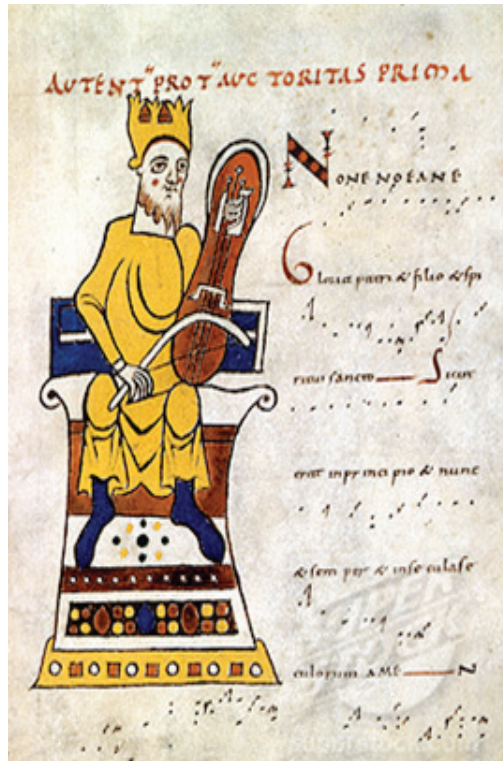 AUTENTꝰ PROTꝰ AUCTORITAS PRIMA
NONENOEANE
Gloria patri & filio & spi
ritui sancto — Sicut
erat inprincipio & nunc
& sem per & inse culase
culorum AME — N